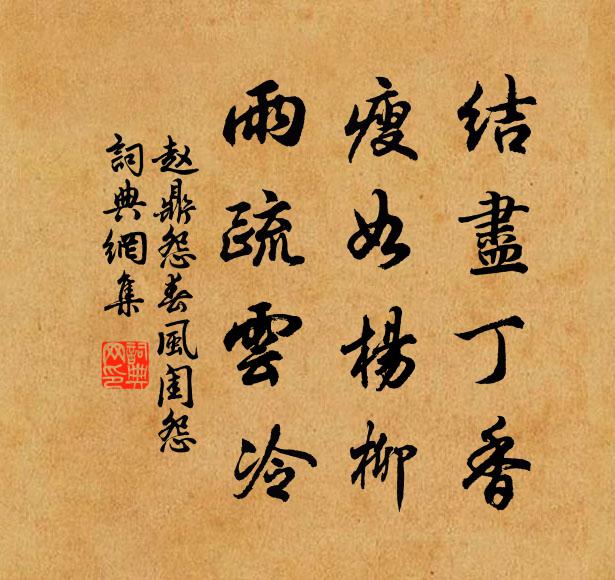 結盡丁香
瘦如楊柳
雨疏雲冷
赵鼎怨春風閨怨
詞典網集
詞典
网印